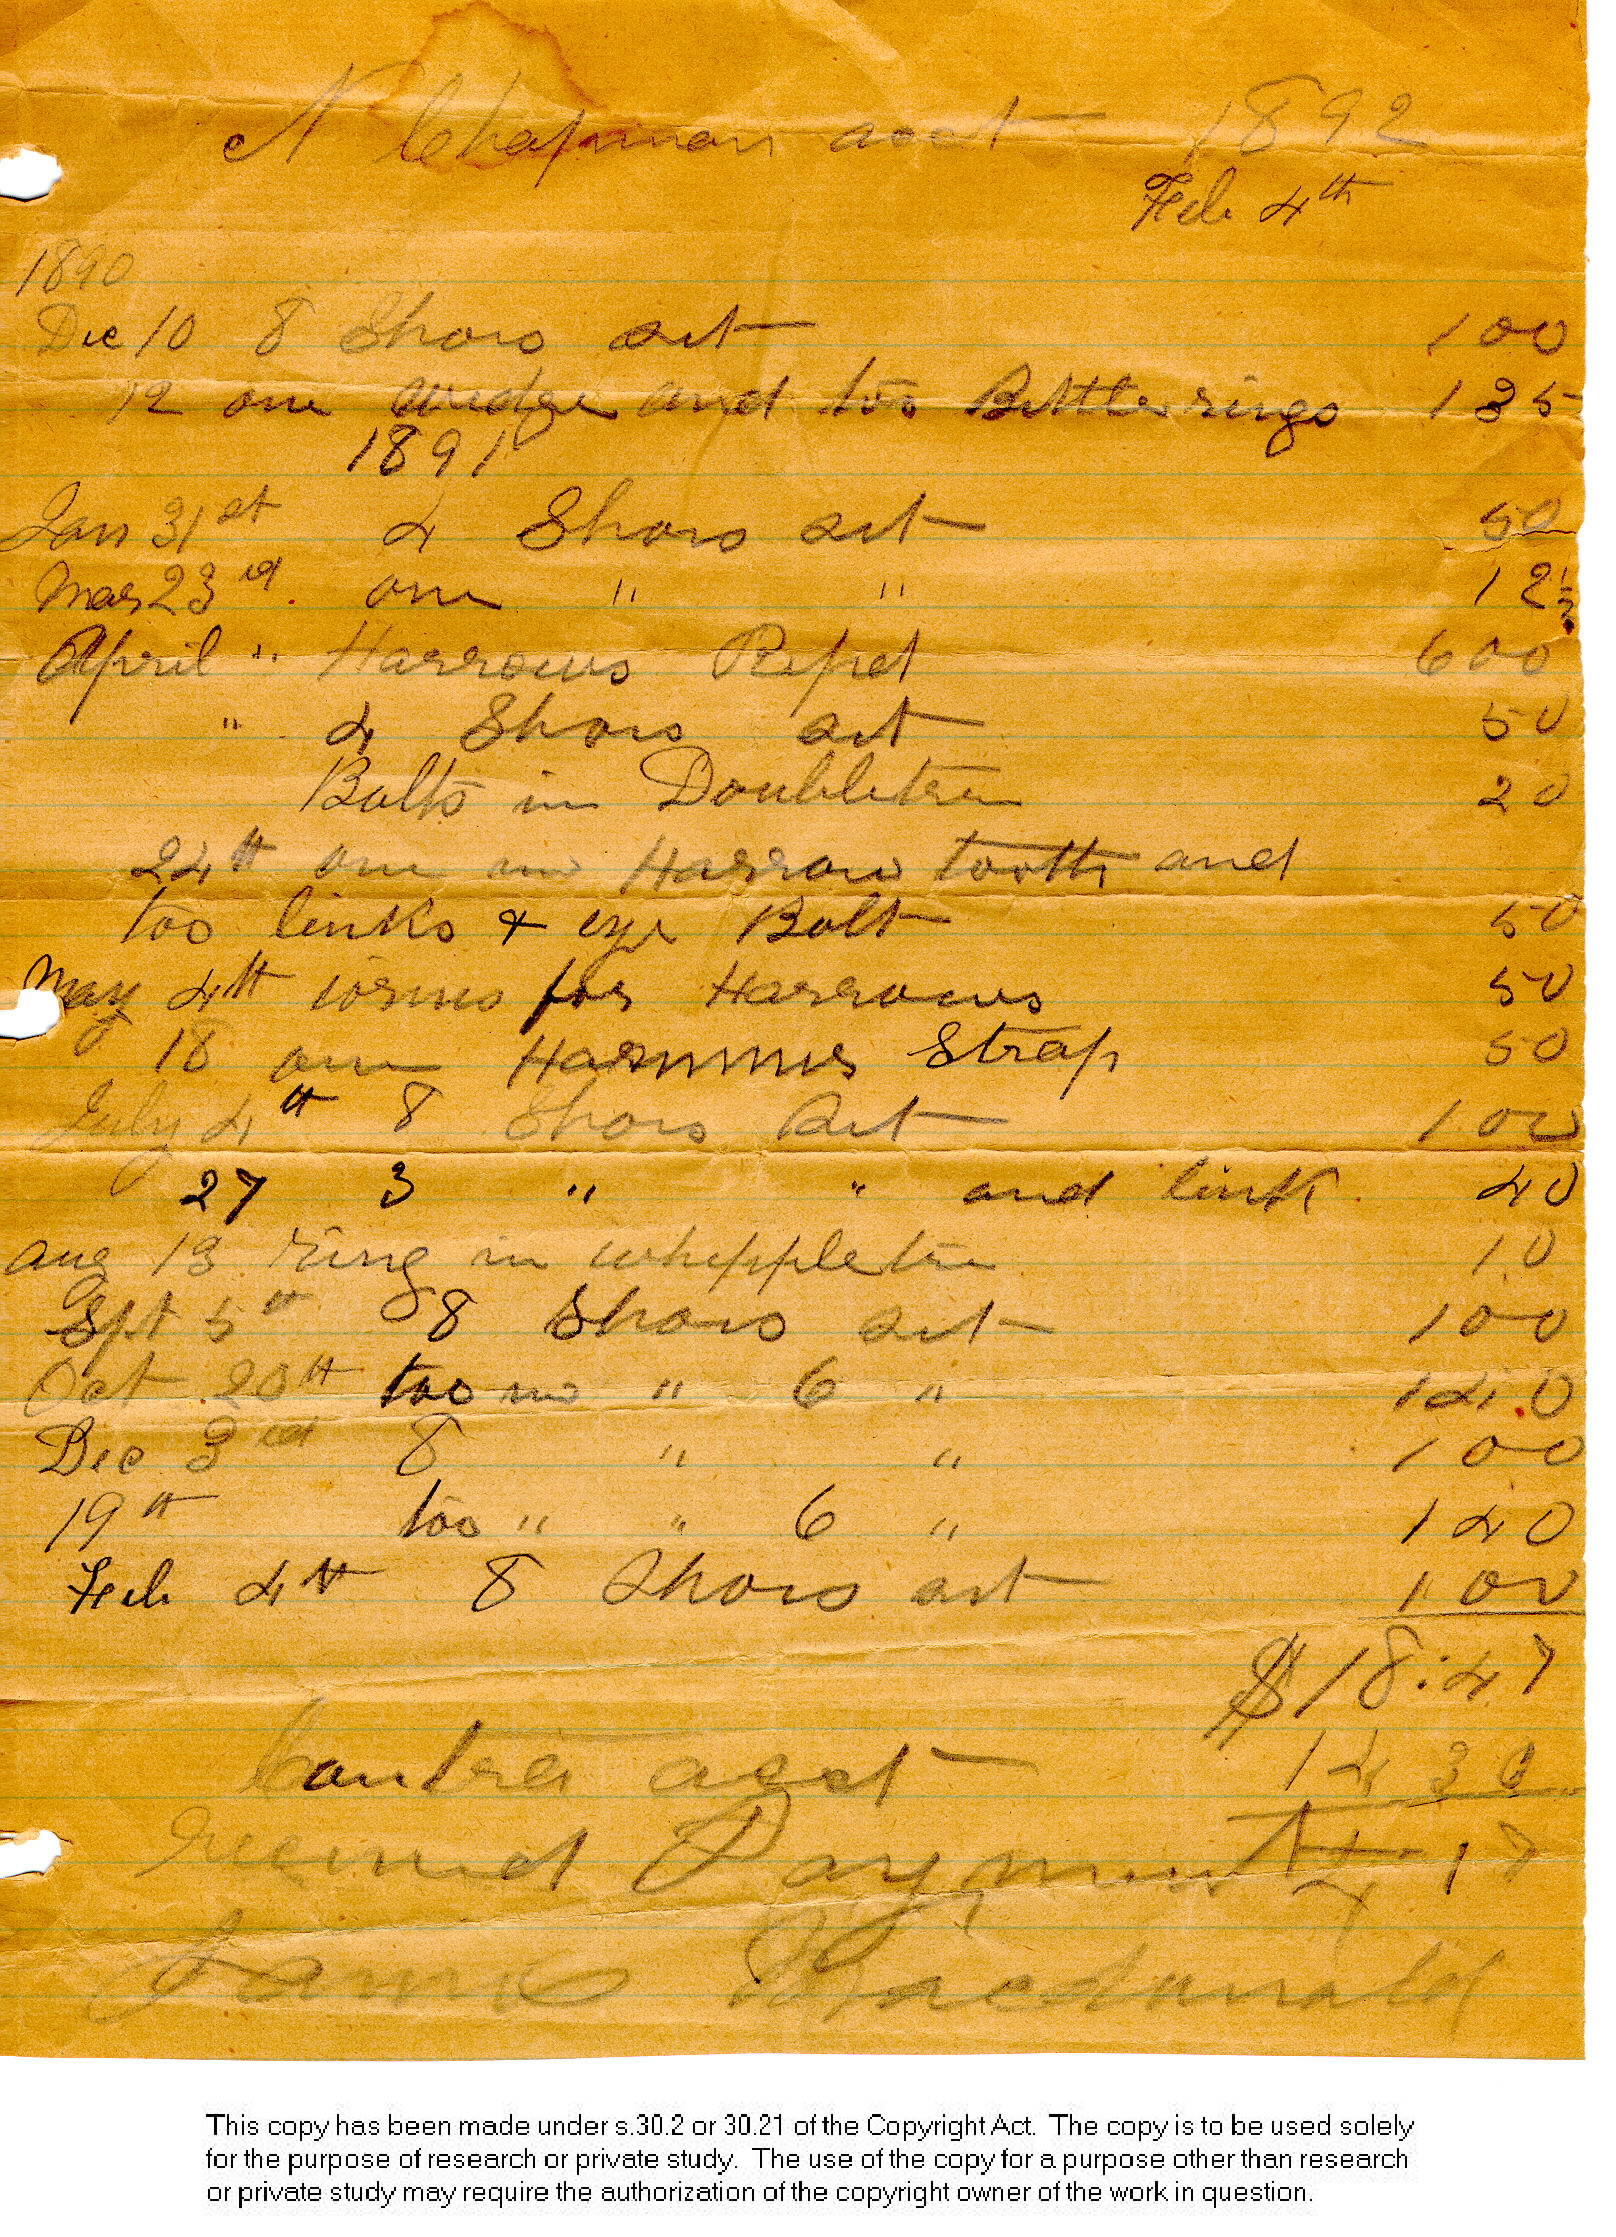 N Chapman acct 1892
Feb 4th
1890
Dec 10 8 Shoes set 100
12 one wedge and too Bettle rings 135
1891
Jan 31st 4 Shoes set 50
Mar 23rd one " " 12½
April " Harrows Repet 600
" 4 Shoes set 50
Bolts in Doubletree 20
24th one new Harrow tooth and
too links + eye Bolt 50
May 4th irons for Harrows 50
18 one Harnness Strap 50
July 4th 8 Shoes set 100
27 3 " " and link 40
Aug 13 ring in whippletree 10
Sept 5th 8 Shoes set 100
Oct 20th too new " 6 " 140
Dec 3rd 8 " " 100
19th too " " 6 " 140
Feb 4th 8 Shoes set 100
$18:47
Contra acct 14 30
received Payment 4 17
James Macdonald
This copy has been made under s.30.2 or 30.21 of the Copyright Act. The copy is to be used solely
for the purpose of research or private study. The use of the copy for a purpose other than research
or private study may require the authorization of the copyright owner of the work in question.